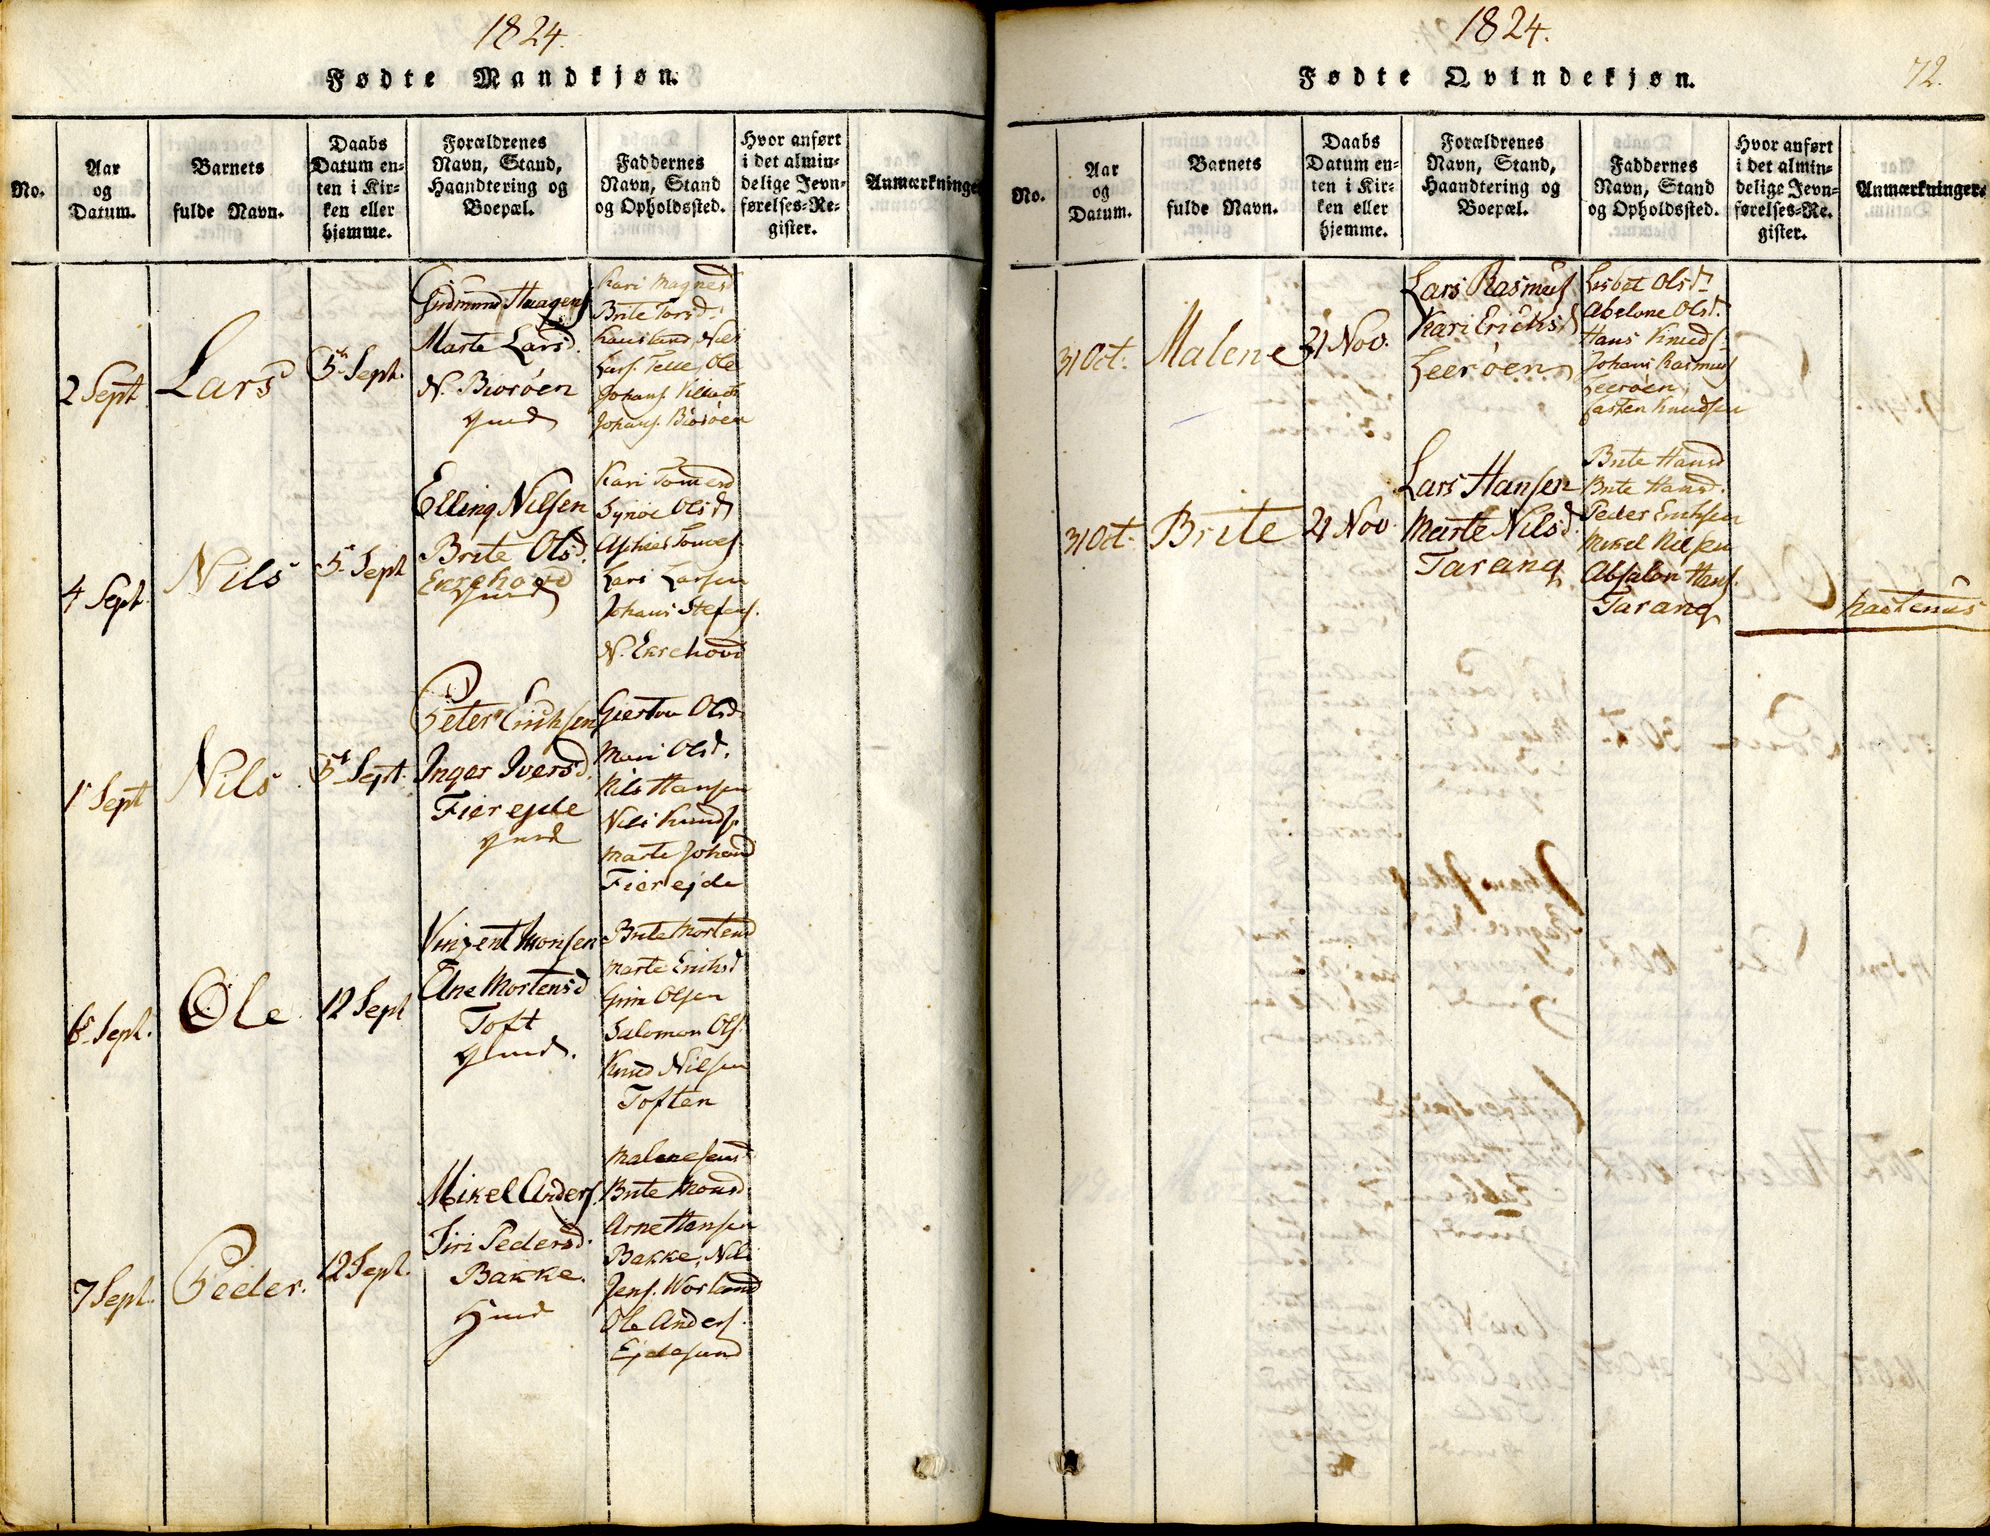 1824.
Fødte Mandkjøn.
No.
Aar
og
Datum.
Barnets
fulde Navn.
Daabs
Datum en-
ten i Kir-
ken eller
hjemme.
Forældrenes
Navn, Stand,
Haandtering og
Boepæl.
Faddernes
Navn, Stand
og Opholdssted.
Hvor anført
i det almin-
delige Jevn-
førelses-Re-
gister.
Anmærkninge
2 Sept
Lars
5 Sept.
Gudmund Haagens
Marte Larsd.
N. Biorøen
gmd
Kari Magnesd
Brite Torsd.
Hausland, Nils
Lars. Telle, Ole
Johans.
Johans. Biorøen
4 Sept.
Nils
5 Sept
Elling Nilsen
Brite Olsd.
Ekrehovd
gmd
Kari Tomesd
Synøe Olsd
Tomes.
Lars Larsen
Johans Stefens.
N. Ekrehovd
1 Sept
Nils
5 Sept.
Peter Erichsen
Inger Iversd.
Fierejde
gmd
Giertru Olsd.
Mari Olsd.
Nils Hansen
Nils Knuds.
Marte Johansd
Fierejde
6 Sept.
Ole
12 Sept
Vinzent Monsen
Ane Mortensd
Toft
gmd.
Brite Mortensd
Marte Erichsd
Grim Olsen
Salomon Ols.
Knud Nilsen
Toften
7 Sept.
Peder.
12 Sept.
Mikel Anders.
Siri Pedersd.
Bakke.
Hmd
Malene Jensd.
Brite Monsd.
Arne Hansen
Bakke, Nils
Jens. Worland
Ole Anders.
Ejdesund
1824.
72.
Fødte Qvindekjøn.
No.
Aar
og
Datum.
Barnets
fulde Navn.
Daabs
Datum en-
ten i Kir-
ken eller
hjemme.
Forældrenes
Navn, Stand,
Haandtering og
Boepæl.
Faddernes
Navn, Stand
og Opholdssted.
Hvor anført
i det almin-
delige Jevn-
førelses-Re-
gister.
Anmærkninger.
31 Oct.
Malene
21 Nov.
Lars Rasmus
Kari Erichsd
Leerøen
Lisbet Olsd.
Abelone Olsd.
Hans Knuds.
Johans Rasmus
Leerøen,
Casten Knudsen
31 Oct.
Brite
21 Nov.
Lars Hansen
Marte Nilsd.
Tarang
Brite Hansd
Brite Hansd.
Peder Erichsen
Mikel Nilsen
Absalon Hans.
Tarang